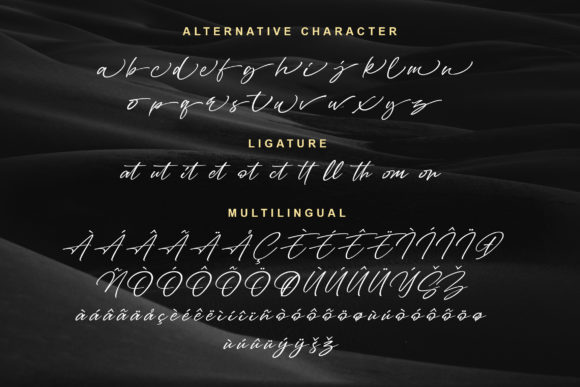 ALTERNATIVE CHARACTER
a b c d e f g h i j k l m n
o p q r s t u v w x y z
LIGATURE
at ut it et ot ct tt ll th om on
MULTILINGUAL
À Á Â Ã Ä Å Ç È É Ê Ë Ì Í Î Ï Ð
Ñ Ò Ó Ô Õ Ö Ø Ù Ú Û Ü Ý Š Ž
ù ú û ü ý ÿ š ž